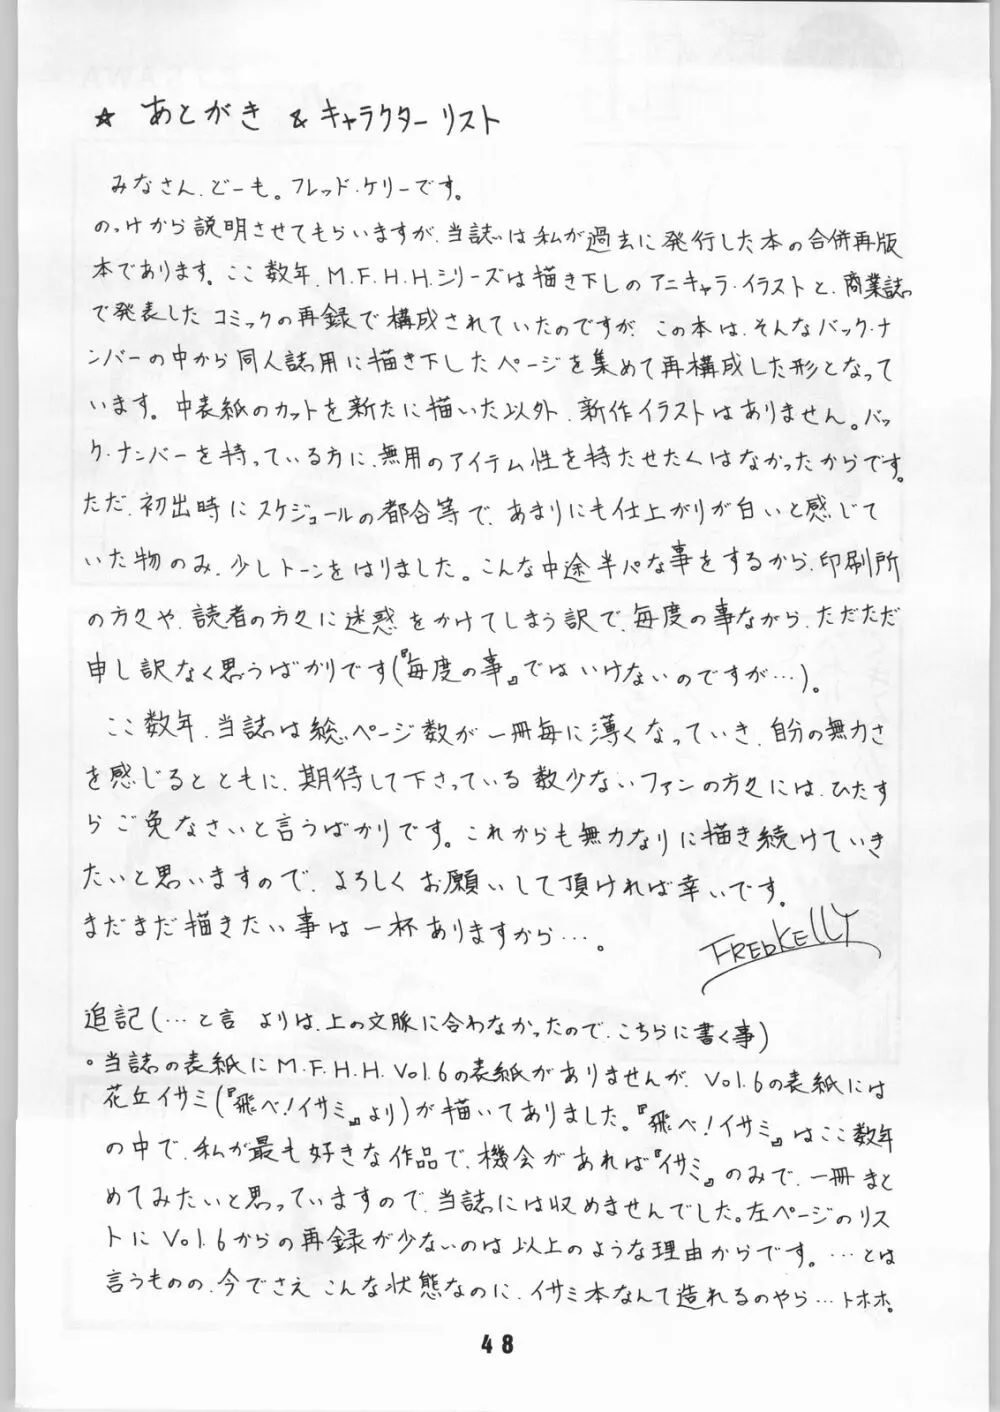 ☆ あとがき & キャラクターリスト
みなさん、どーも。フレッド・ケリーです。
のっけから説明させてもらいますが、当誌は私が過去に発行した本の合併再版
本であります。ここ数年、M.F.H.H.シリーズは描き下しのアニキャラ・イラストと、商業誌
で発表したコミックの再録で構成されていたのですが、この本は、そんなバック・ナ
ンバーの中から同人誌用に描き下したページを集めて再構成した形となって
います。中表紙のカットを新たに描いた以外、新作イラストはありません。バッ
ク・ナンバーを持っている方に、無用のアイテム性を持たせたくはなかったからです。
ただ、初出時にスケジュールの都合等で、あまりにも仕上がりが白いと感じて
いた物のみ、少しトーンをはりました。こんな中途半パな事をするから、印刷所
の方々や、読者の方々に迷惑をかけてしまう訳で、毎度の事ながら、ただただ
申し訳なく思うばかりです(『毎度の事』ではいけないのですが…)。
ここ数年、当誌は総ページ数が一冊毎に薄くなっていき、自分の無力さ
を感じるとともに、期待して下さっている数少ないファンの方々には、ひたす
らご免なさいと言うばかりです。これからも無力なりに描き続けていき
たいと思いますので、よろしくお願いして頂ければ幸いです。
まだまだ描きたい事は一杯ありますから…。
FREDKELLY
追記(…と言 よりは、上の文脈に合わなかったので、こちらに書く事)
・当誌の表紙にM.F.H.H.Vol.6の表紙がありませんが、Vol.6の表紙には
花丘イサミ(『飛べ!イサミ』より)が描いてありました。『飛べ!イサミ』はここ数年
の中で、私が最も好きな作品で、機会があれば『イサミ』のみで、一冊まと
めてみたいと思っていますので、当誌には収めませんでした。左ページのリス
トにVol.6からの再録が少ないのは以上のような理由からです。…とは
言うものの、今でさえこんな状態なのに、イサミ本なんて造れるのやら…トホホ。
48